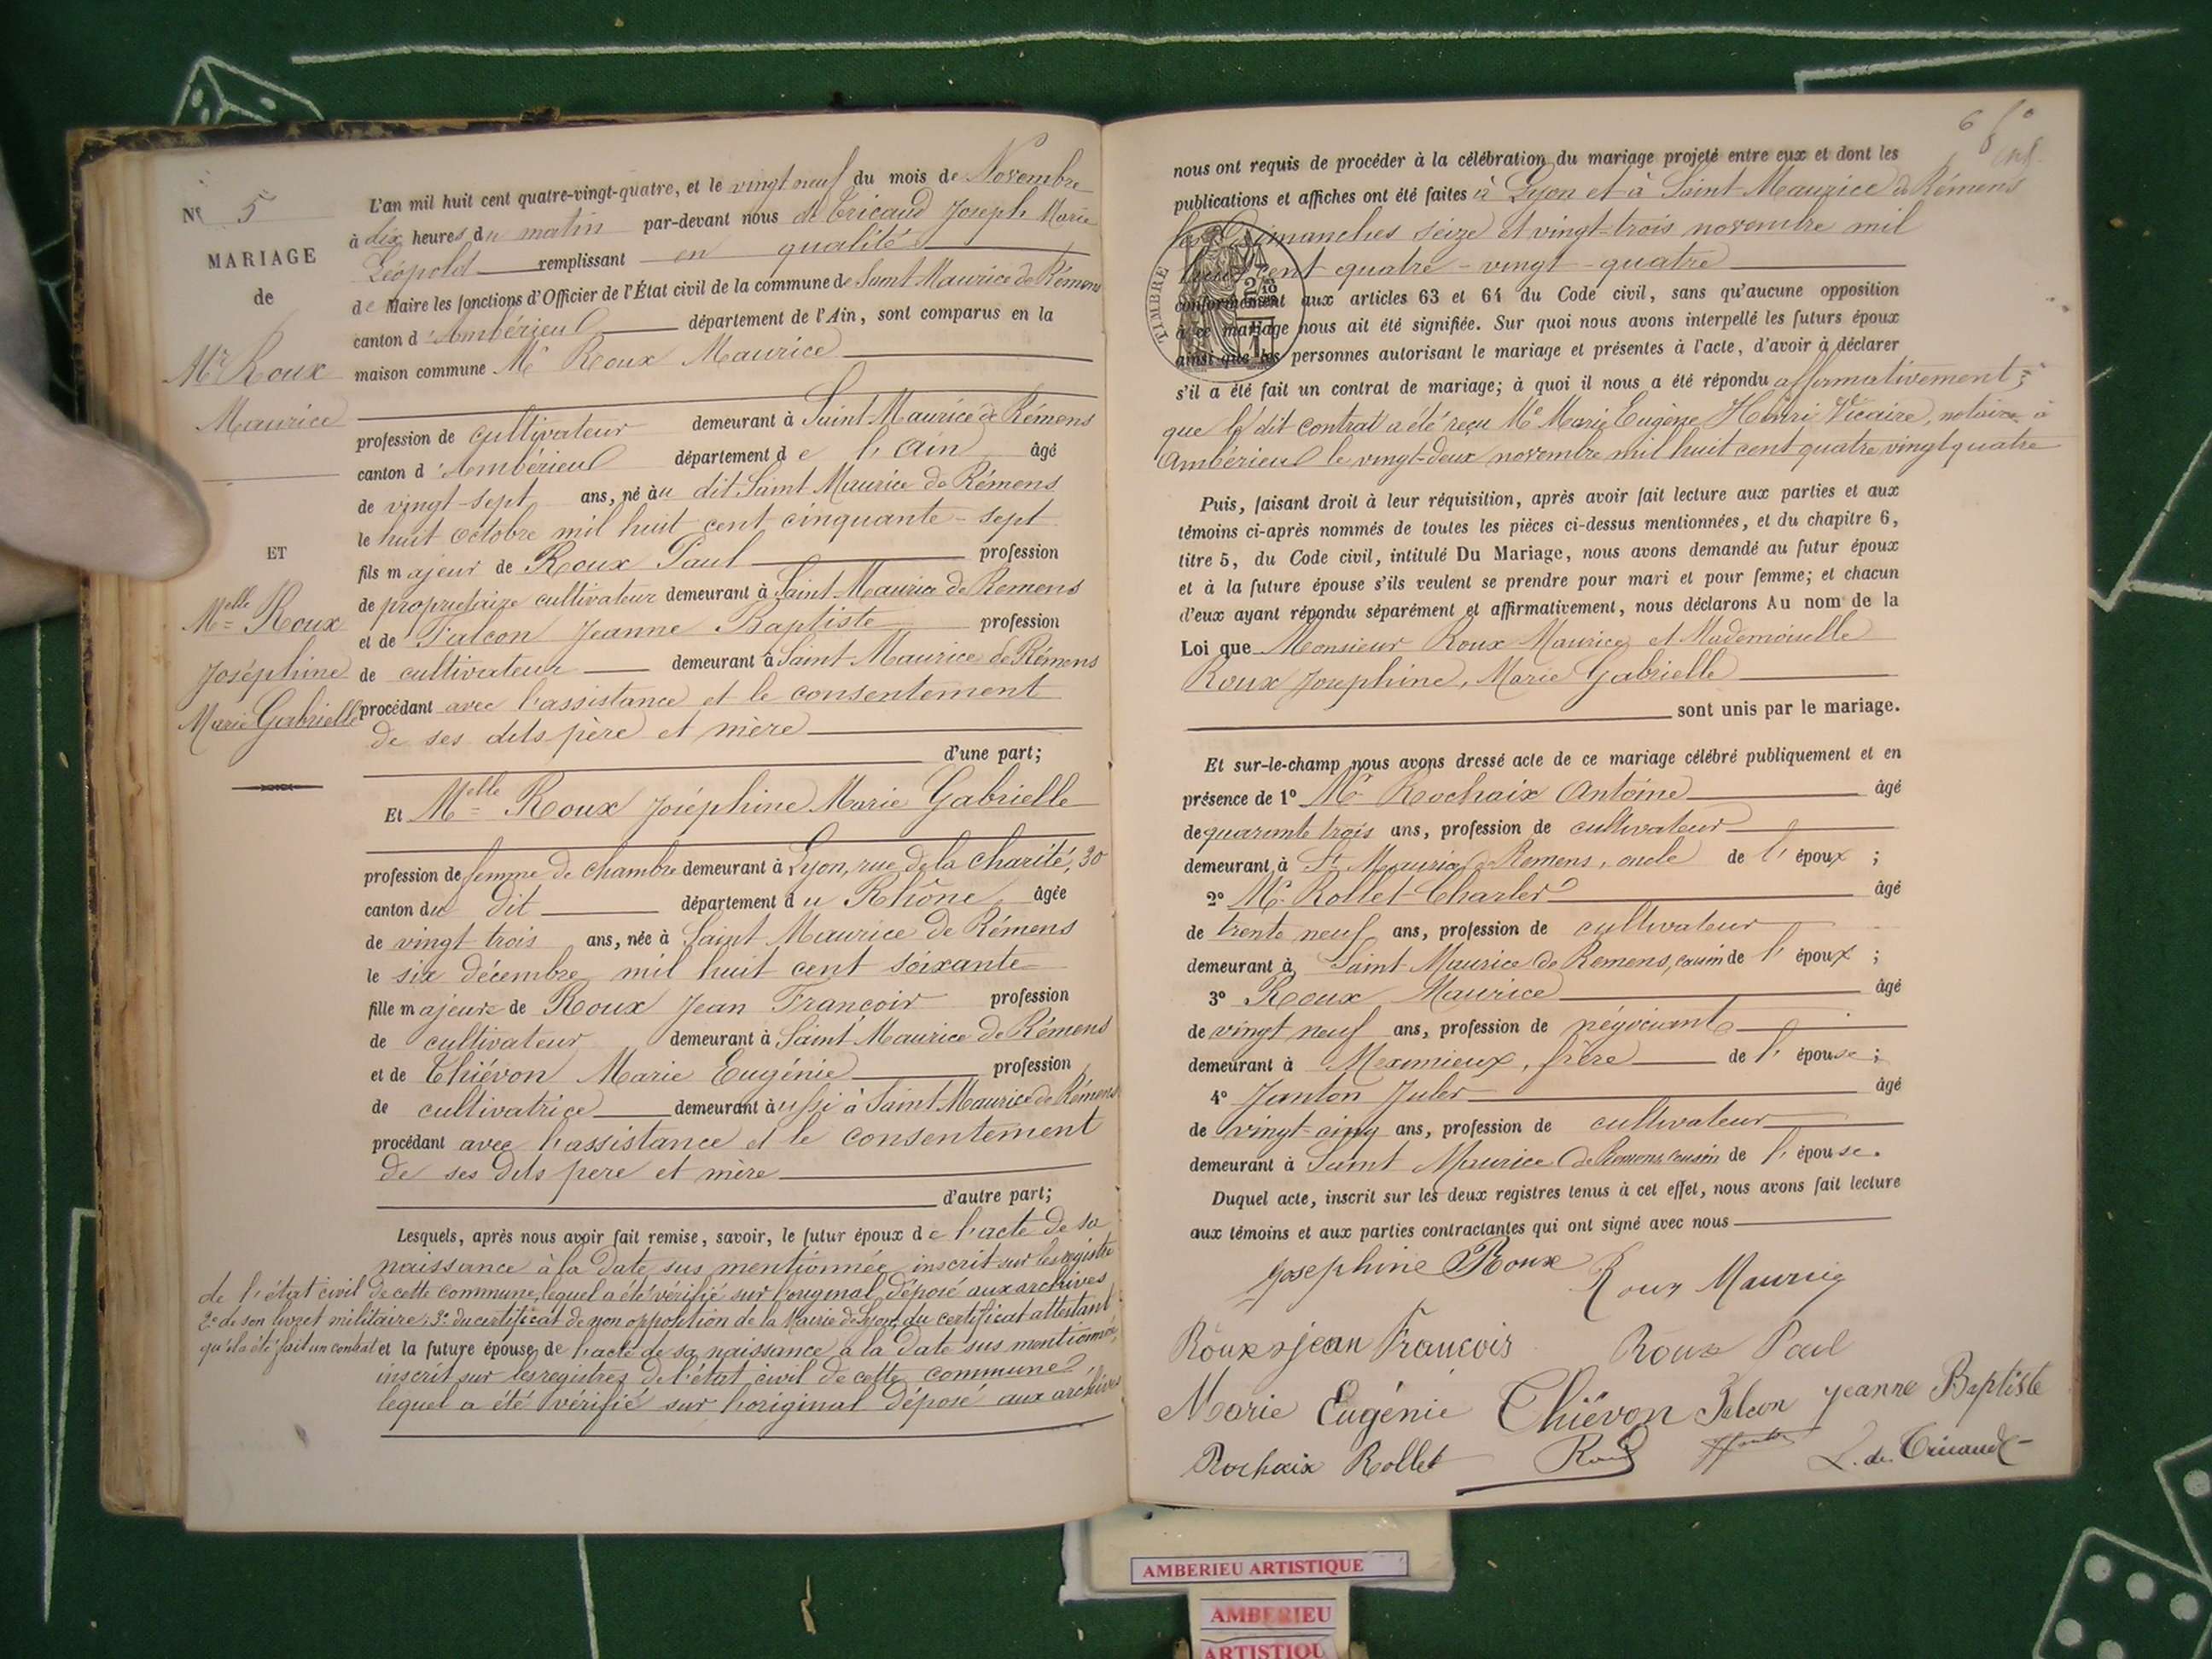 N° 5
MARIAGE
de
Mr Roux
Maurice
ET
Melle Roux
Joséphine
Marie Gabrielle
L'an mil huit cent quatre-vingt-quatre, et le vingt neuf du mois de Novembre
à dix heures du matin par-devant nous de Tricaud Joseph Marie
Léopold remplissant en qualité
de Maire les fonctions d'Officier de l'État civil de la commune de Saint Maurice de Rémens
canton d'Ambérieu département de l'Ain, sont comparus en la
maison commune Mr Roux Maurice
profession de cultivateur demeurant à Saint Maurice de Rémens
canton d'Ambérieu département de l'Ain âgé
de vingt-sept ans, né àu dit Saint Maurice de Rémens
le huit octobre mil huit cent cinquante-sept
fils majeur de Roux Paul profession
de propriétaire cultivateur demeurant à Saint Maurice de Remens
et de Falcon Jeanne Baptiste profession
de cultivateur demeurant à Saint Maurice de Rémens
procédant avec l'assistance et le consentement
de ses dits père et mère
d'une part;
Et Melle Roux Joséphine Marie Gabrielle
profession de femme de chambre demeurant à Lyon, rue de la Charité, 30
canton du dit département du Rhône âgée
de vingt trois ans, née à Saint Maurice de Rémens
le six décembre mil huit cent soixante
fille majeure de Roux Jean François profession
de cultivateur demeurant à Saint Maurice de Rémens
et de Thiévon Marie Eugénie profession
de cultivatrice demeurant àussi à Saint Maurice de Rémens
procédant avec l'assistance et le consentement
de ses dits père et mère
d'autre part;
Lesquels, après nous avoir fait remise, savoir, le futur époux de l'acte de sa
naissance à la date sus mentionnée inscrit sur les registres
de l'état civil de cette commune, lequel a été vérifié sur l'original déposé aux archives
2° de son livret militaire, 3° du certificat de non opposition de la Mairie de Lyon, du certificat attestant
qu'il a été fait un contrat et la future épouse, de l'acte de sa naissance à la date sus mentionnée,
inscrit sur les registres de l'état civil de cette commune
lequel a été vérifié sur l'original déposé aux archives
6
nous ont requis de procéder à la célébration du mariage projeté entre eux et dont les
publications et affiches ont été faites à Lyon et à Saint Maurice de Rémens
les Dimanches seize et vingt-trois novembre mil
huit cent quatre-vingt-quatre
conformément aux articles 63 et 64 du Code civil, sans qu'aucune opposition
à ce mariage nous ait été signifiée. Sur quoi nous avons interpellé les futurs époux
ainsi que les personnes autorisant le mariage et présentes à l'acte, d'avoir à déclarer
s'il a été fait un contrat de mariage; à quoi il nous a été répondu affirmativement;
que le dit contrat a été reçu Me Marie Eugène Henri Vicaire, notaire à
Ambérieu le vingt-deux novembre mil huit cent quatre vingt quatre
TIMBRE
Puis, faisant droit à leur réquisition, après avoir fait lecture aux parties et aux
témoins ci-après nommés de toutes les pièces ci-dessus mentionnées, et du chapitre 6,
titre 5, du Code civil, intitulé Du Mariage, nous avons demandé au futur époux
et à la future épouse s'ils veulent se prendre pour mari et pour femme; et chacun
d'eux ayant répondu séparément et affirmativement, nous déclarons Au nom de la
Loi que Monsieur Roux Maurice et Mademoiselle
Roux Josephine, Marie Gabrielle
sont unis par le mariage.
Et sur-le-champ nous avons dressé acte de ce mariage célébré publiquement et en
présence de 1° Mr Rochaix Antoine âgé
de quarante trois ans, profession de cultivateur
demeurant à St Maurice de Remens, oncle de l'époux;
2° Mr Rollet Charles âgé
de trente neuf ans, profession de cultivateur
demeurant à Saint Maurice de Remens, cousin de l'époux;
3° Roux Maurice âgé
de vingt neuf ans, profession de négociant
demeurant à Meximieux, frère de l'épouse;
4° Janton Jules âgé
de vingt-cinq ans, profession de cultivateur
demeurant à Saint Maurice de Remens, cousin de l'épouse.
Duquel acte, inscrit sur les deux registres tenus à cet effet, nous avons fait lecture
aux témoins et aux parties contractantes qui ont signé avec nous
Josephine Roux Roux Maurice
Roux jean François Roux Paul
Marie Eugénie Thiévon Falcon jeanne Baptiste
Rochaix Rollet Roux L. de Tricaud
AMBERIEU ARTISTIQUE
AMBERIEU
ARTISTIQU